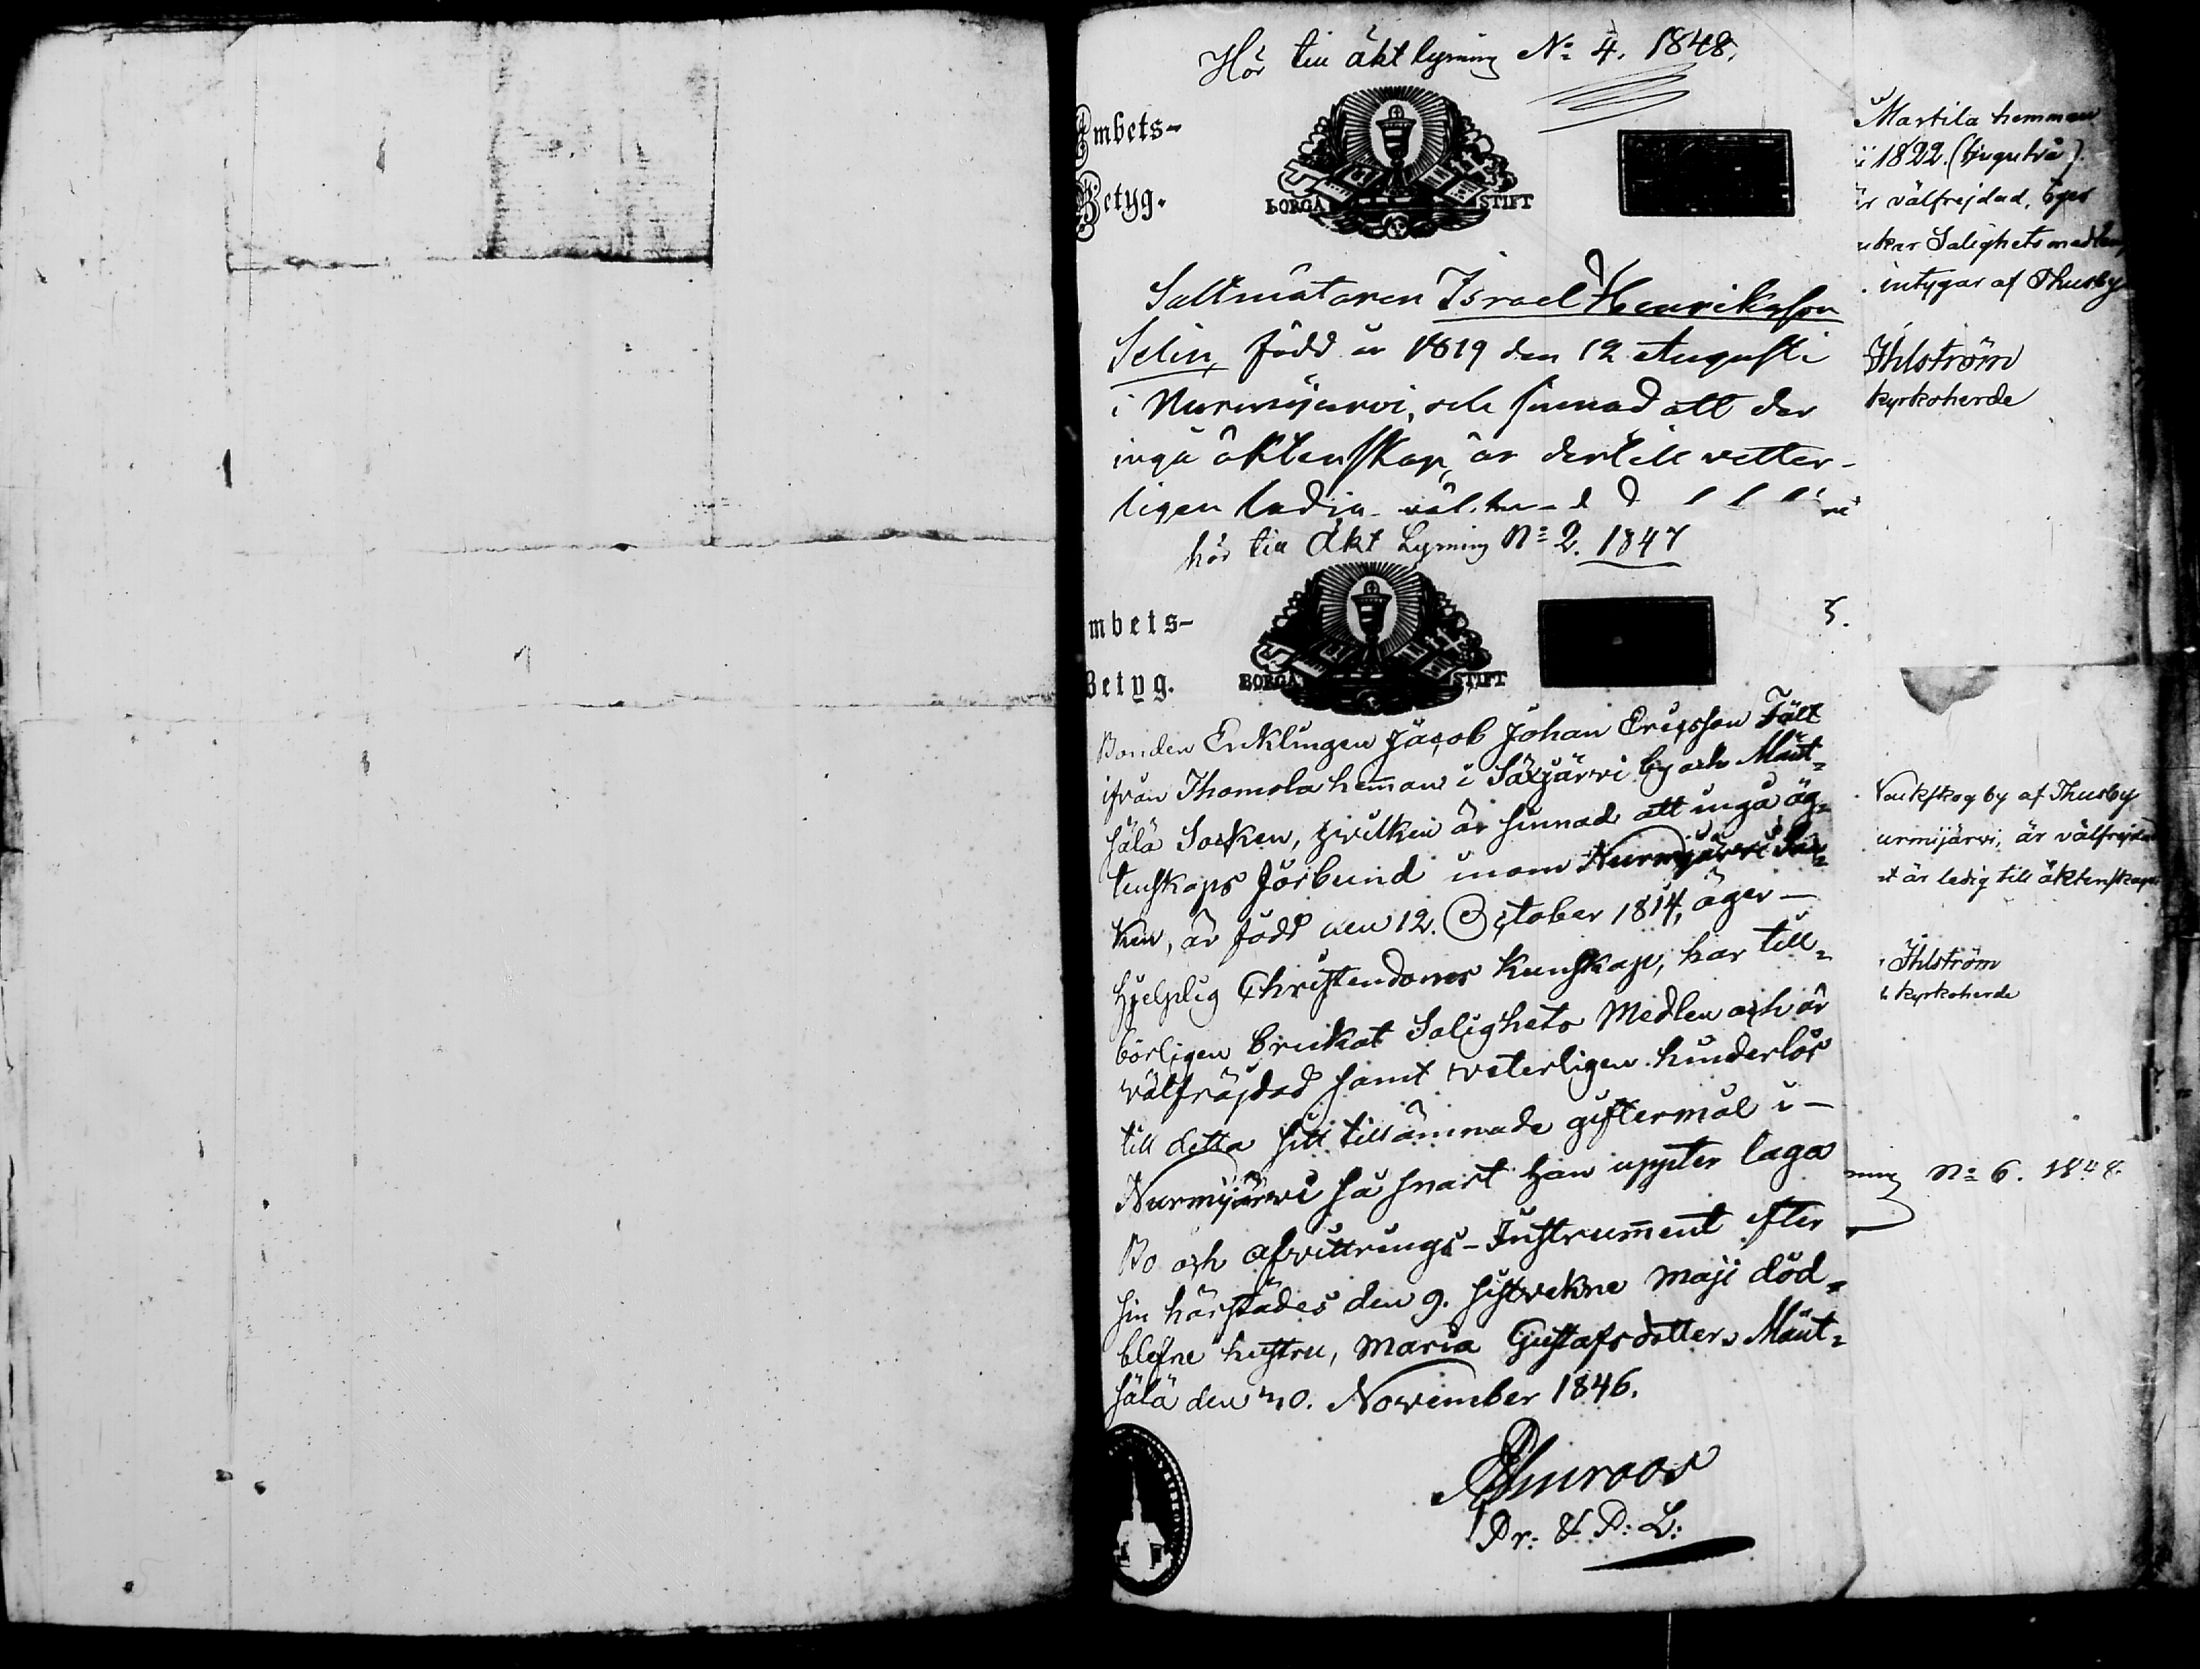 Hör till äkt lysning No 4. 1848.
Embets-
Betyg.
BORGÅ STIFT
Saltmätaren Israel Henriksson
Selin, född år 1819 den 12 Augusti
i Nurmijärvi, och sinnad att der
ingå äktenskap, är dertill vetter-
ligen ledig
hör till Äkt Lysning No 2. 1847
mbets-
Betyg.
BORGÅ STIFT
5.
Bonden Enklingen Jacob Johan Ericsson Fält
ifrån Thomola hemman i Säxjärvi by och Mänt-
sälä Socken, hvilken är sinnad att ingå äg-
tenskaps förbund inom Nurmijärvi Soc-
ken, är född den 12. October 1814, äger –
hjelplig Christendoms kunskap, har till-
börligen brukat Salighets Medlen och är
välfräjdad samt veterligen hinderlös
till detta sitt tillämnade giftermål i –
Nurmijärvi så snart han uppter laga
Bo och afvittrings-Instrument efter
sin härstädes den 9. sistvekne Maji död-
blefne hustru, Maria Gustafsdotter. Mänt-
sälä den 20. November 1846.
Pr: & P: L:
Martila hemman
1822. (tjugutvå).
är välfrejdad, eger
ukar Salighetsmedlen
. intygar af Thusby
Ihlström
kyrkoherde
by af Thusby
urmijärvi, är välfrejdad
t är ledig till äktenskap
Ihlström
kyrkoherde
ning No 6. 1848.